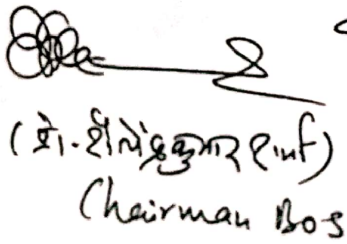 (प्रो. शैलेन्द्रकुमार शर्मा)
Chairman BOS